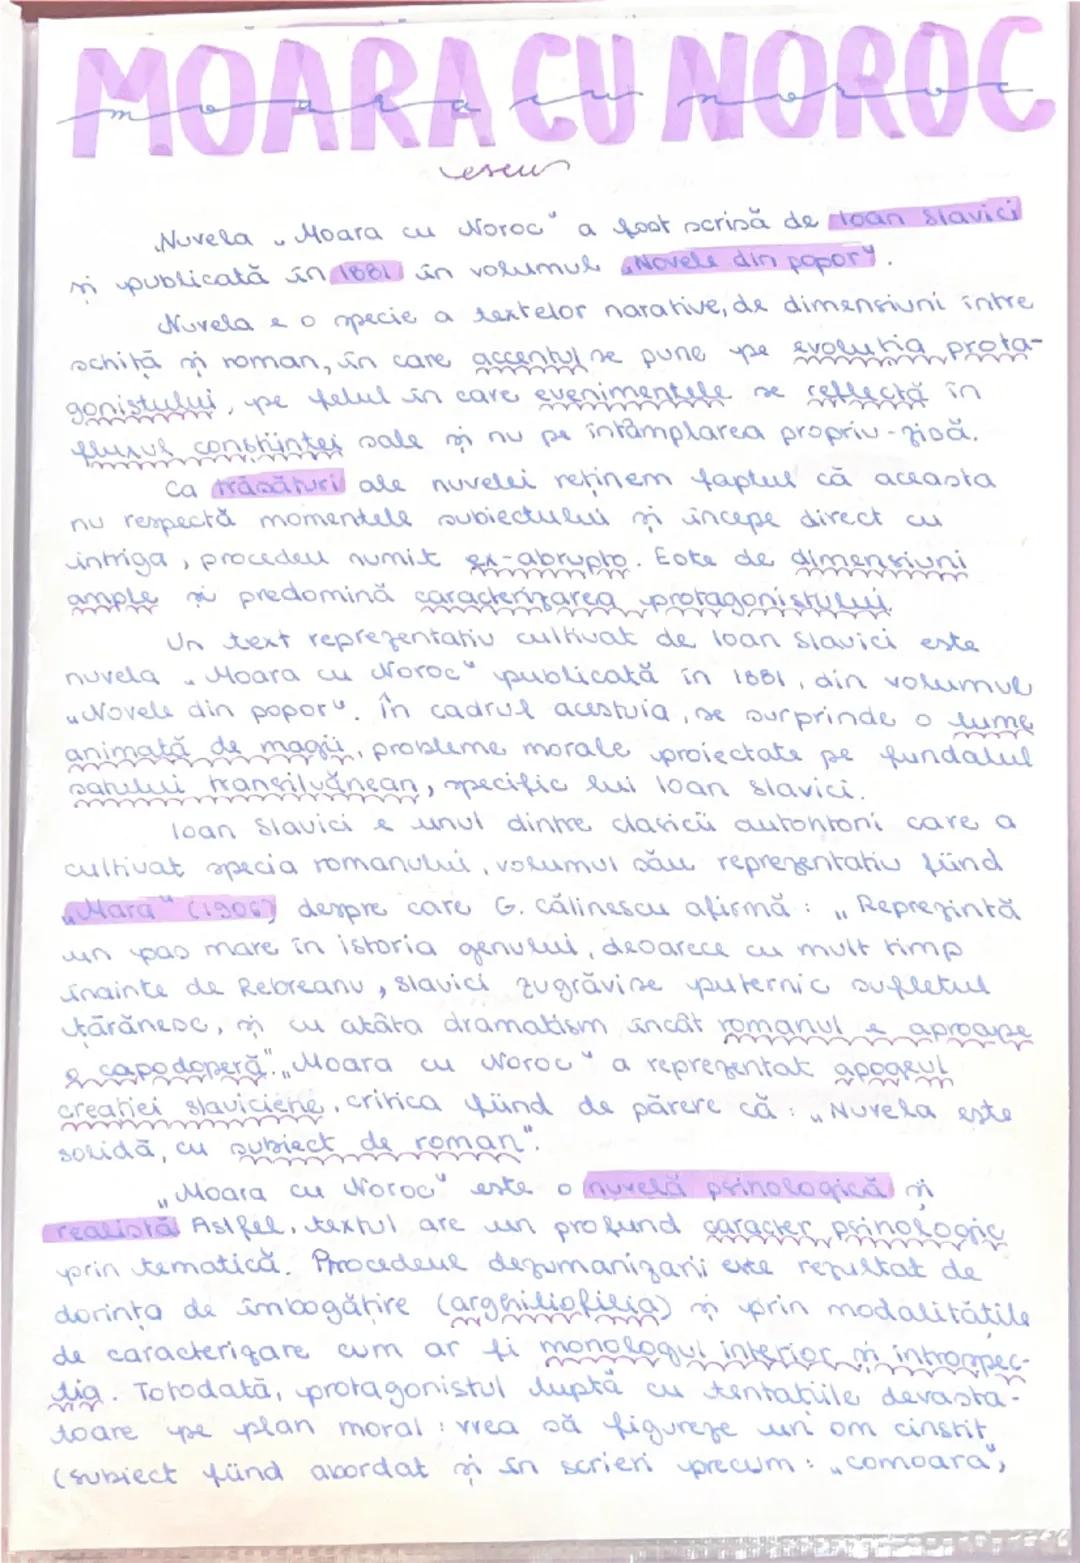 MOARA CU NOROC
moara cu noroc
eseu
Nuvela „Moara cu Noroc" a fost scrisă de Ioan Slavici
și publicată în 1881 în volumul „Novele din popor".
Nuvela e o specie a textelor narative, de dimensiuni între
schiță și roman, în care accentul se pune pe evoluția prota-
gonistului, pe felul în care evenimentele se reflectă în
fluxul conștiinței sale și nu pe întâmplarea propriu-zisă.
Ca trăsături ale nuvelei reținem faptul că aceasta
nu respectă momentele subiectului și începe direct cu
intriga, procedeu numit ex-abrupto. Este de dimensiuni
ample și predomină caracterizarea protagonistului.
Un text reprezentativ cultivat de Ioan Slavici este
nuvela „Moara cu Noroc" publicată în 1881, din volumul
„Novele din popor". În cadrul acestuia, se surprinde o lume
animată de magii, probleme morale proiectate pe fundalul
satului transilvănean, specific lui Ioan Slavici.
Ioan Slavici e unul dintre clasicii autohtoni care a
cultivat specia romanului, volumul său reprezentativ fiind
„Mara" (1906) despre care G. Călinescu afirmă: „Reprezintă
un pas mare în istoria genului, deoarece cu mult timp
înainte de Rebreanu, Slavici zugrăvise puternic sufletul
țărănesc, și cu atâta dramatism încât romanul e aproape
o capodoperă". „Moara cu Noroc" a reprezentat apogeul
creației slaviciene, critica fiind de părere că: „Nuvela este
solidă, cu subiect de roman".
„Moara cu Noroc" este o nuvelă psihologică și
realistă. Astfel, textul are un profund caracter psihologic
prin tematică. Procedeul dezumanizarii este rezultat de
dorința de îmbogățire (arghiliofilia) și prin modalitățile
de caracterizare cum ar fi monologul interior și introspec-
ția. Totodată, protagonistul luptă cu tentațiile devasta-
toare pe plan moral: vrea să figureze un om cinstit
(subiect fiind abordat și în scrieri precum: „Comoara",